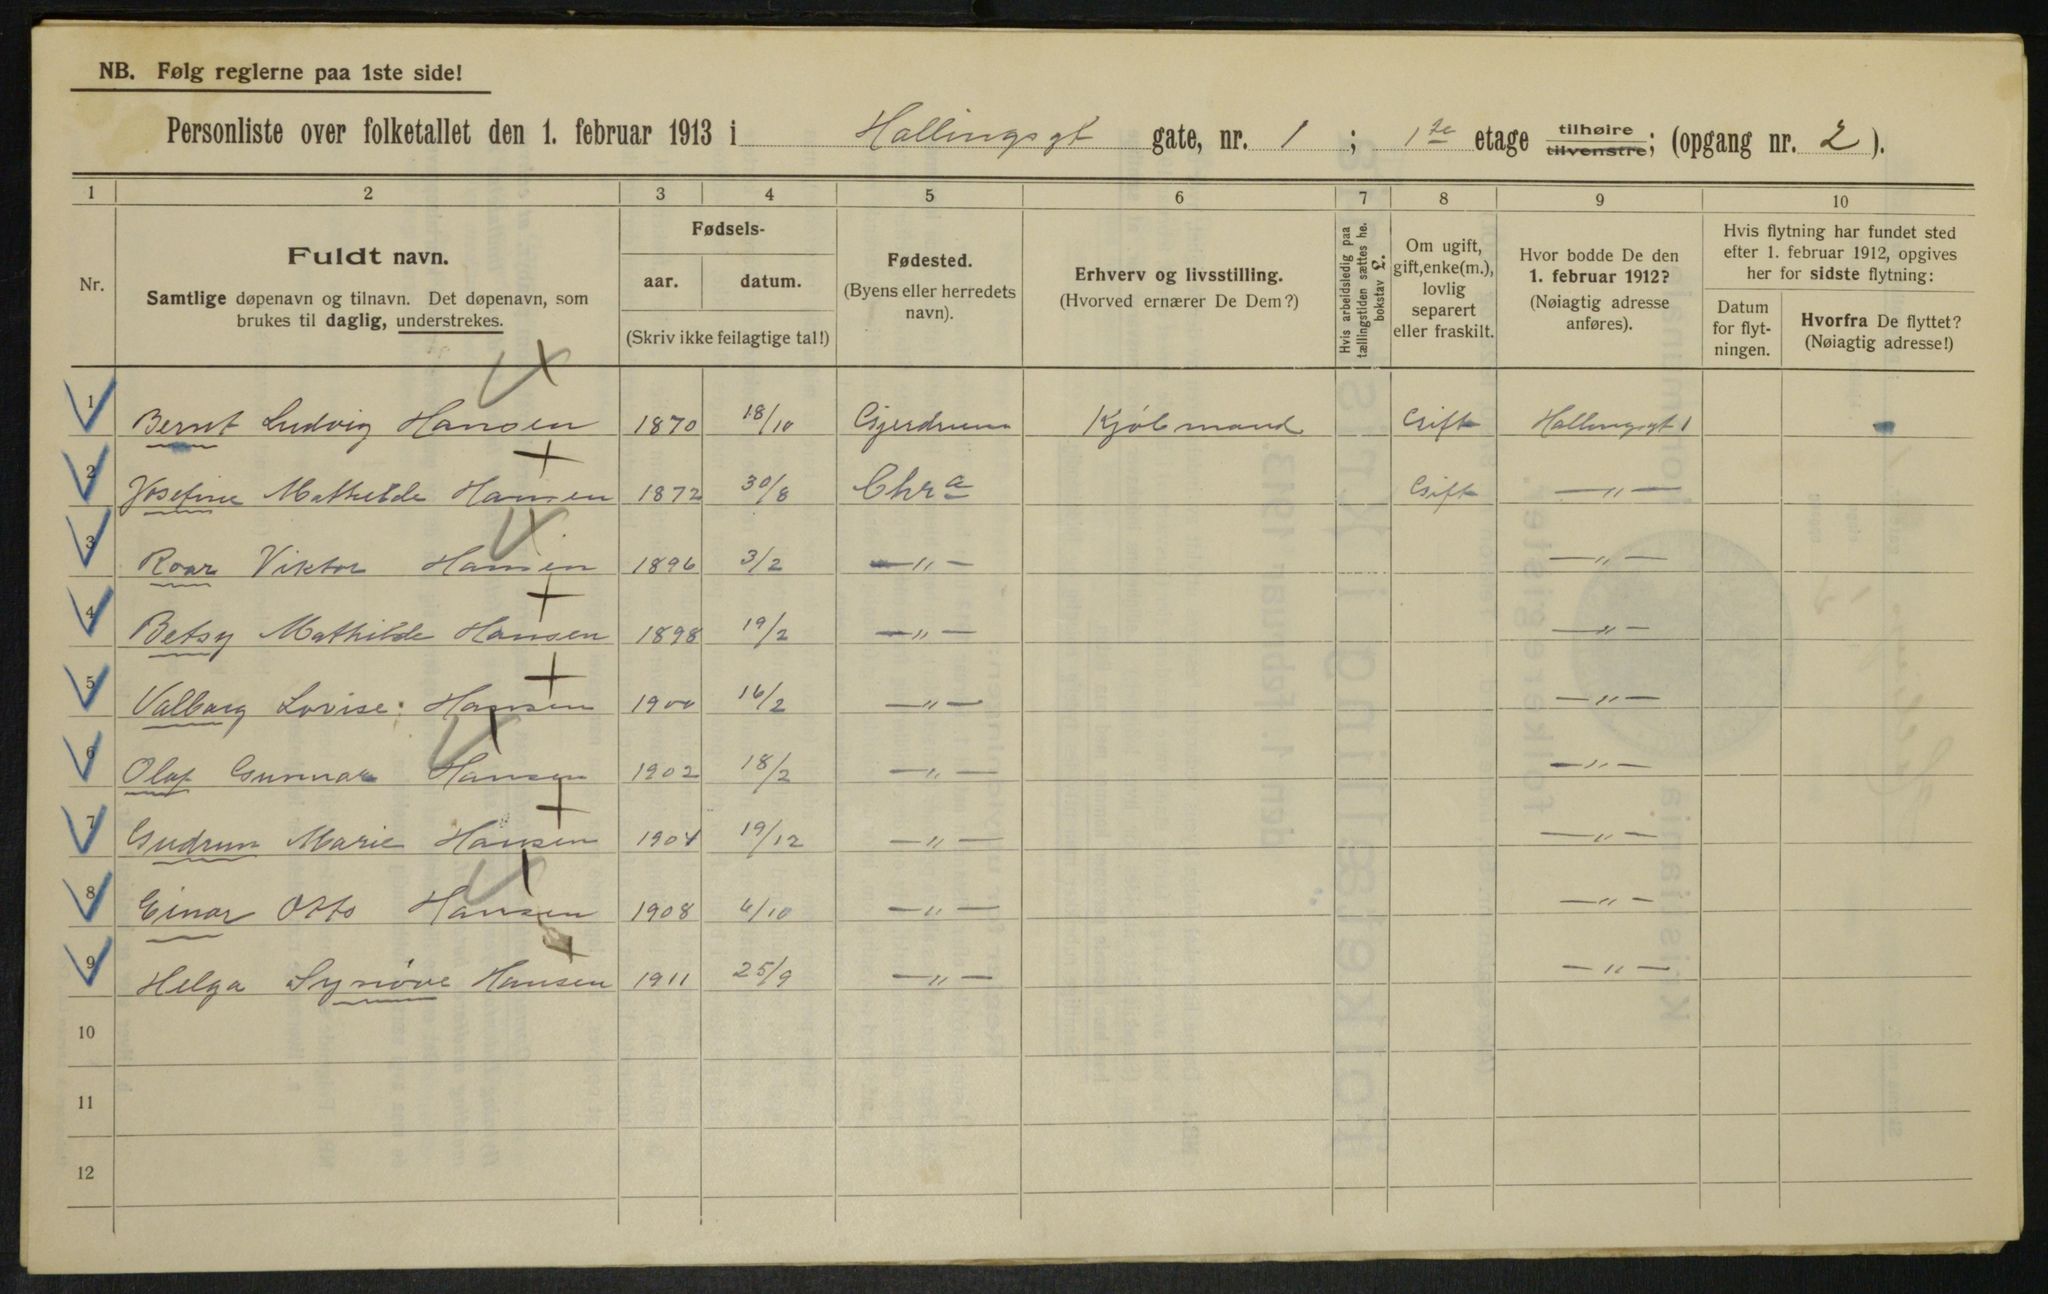 NB. Følg reglerne paa 1ste side!
Personliste over folketallet den 1. februar 1913 i Hallingsgt gate, nr. 1 ; 1ste etage tilhøire tilvenstre; (opgang nr. 2 ).
1 2 3 4 5 6 7 8 9 10
Nr.
Fuldt navn.
Samtlige døpenavn og tilnavn. Det døpenavn, som
brukes til daglig, understrekes.
Fødsels-
aar. datum.
(Skriv ikke feilagtige tal!)
Fødested.
(Byens eller herredets
navn).
Erhverv og livsstilling.
(Hvorved ernærer De Dem?)
Hvis arbeidsledig paa
tællingstiden sættes he.
bokstav L.
Om ugift,
gift, enke(m.),
lovlig
separert
eller fraskilt.
Hvor bodde De den
1. februar 1912?
(Nøiagtig adresse
anføres).
Hvis flytning har fundet sted
efter 1. februar 1912, opgives
her for sidste flytning:
Datum
for flyt-
ningen.
Hvorfra De flyttet?
(Nøiagtig adresse!)
1 Bernt Ludvig Hansen 1870 18/10 Gjerdrum Kjøbmand Gift Hallingsgt 1
2 Josefine Mathilde Hansen 1872 30/8 Chra Gift —"—
3 Roar Viktor Hansen 1896 3/2 —"— —"—
4 Betsy Mathilde Hansen 1898 19/2 —"— —"—
5 Valborg Lovise Hansen 1900 16/2 —"— —"—
6 Olaf Gunnar Hansen 1902 18/2 —"— —"—
7 Gudrun Marie Hansen 1904 19/12 —"— —"—
8 Einar Otto Hansen 1908 6/10 —"— —"—
9 Helga Synøve Hansen 1911 25/9 —"— —"—
10
11
12